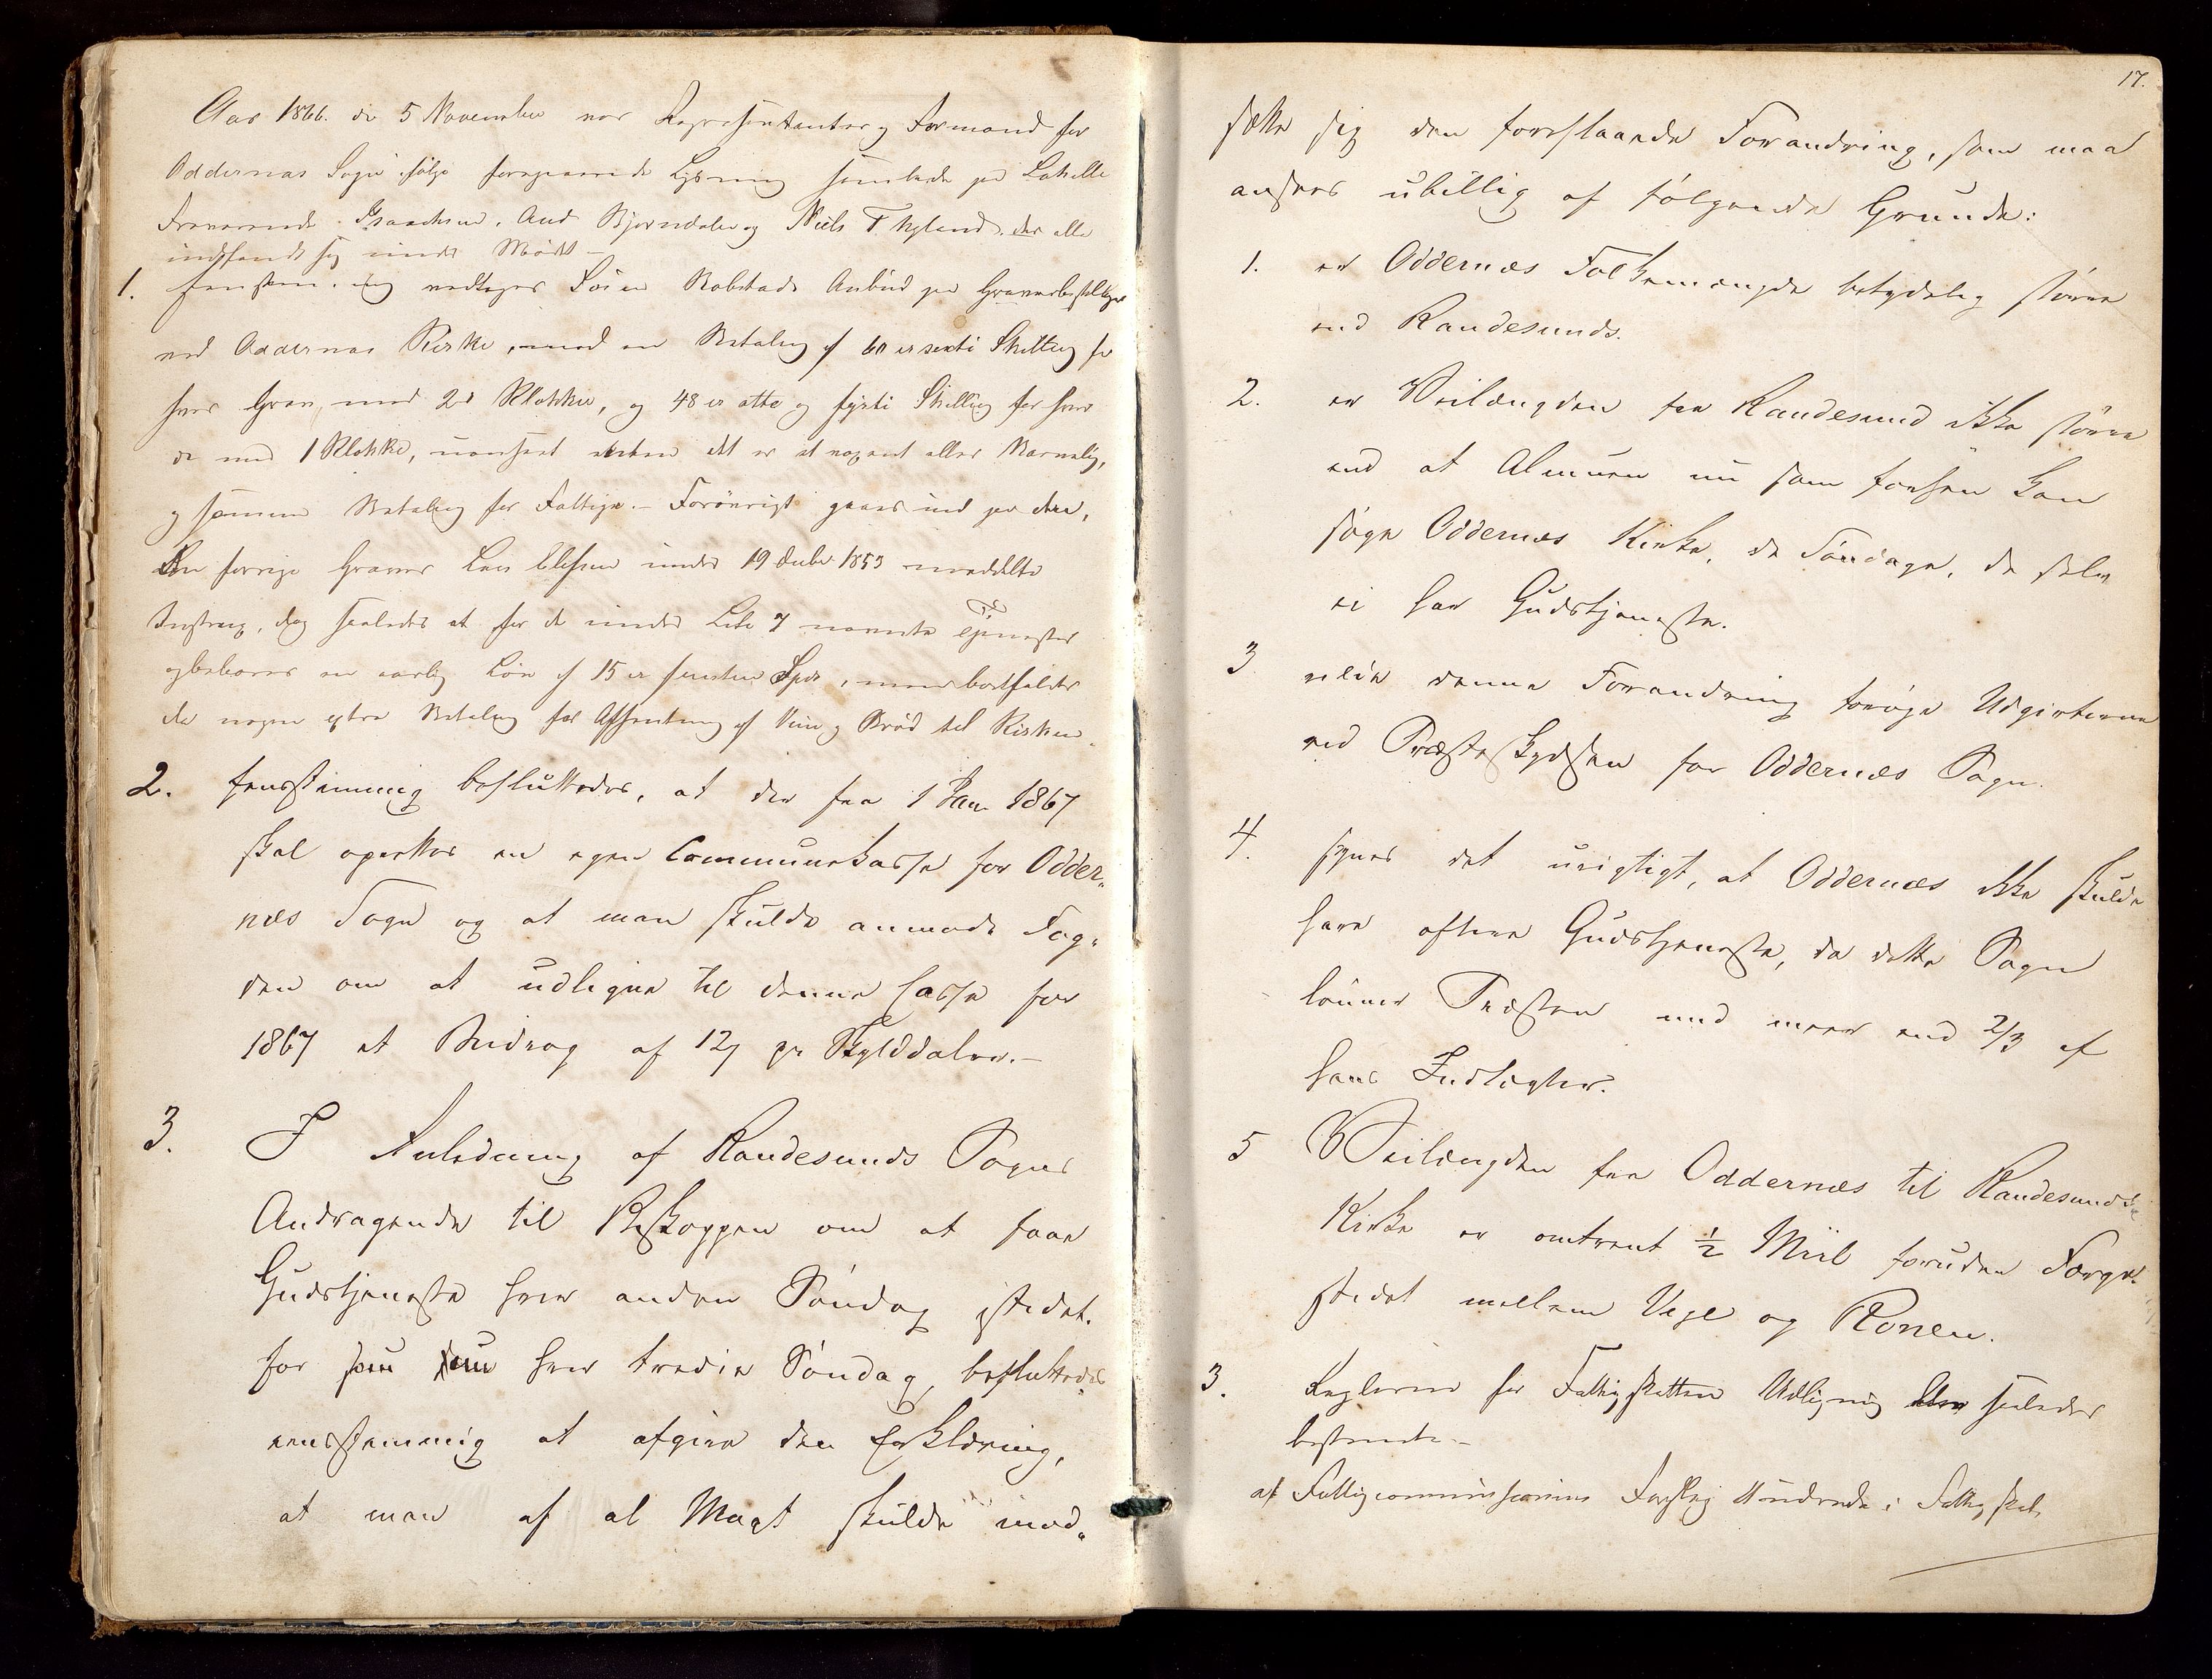 Aar 1866. den 5 November var Repræsentanter og Formænd for
Oddernæs Sogn ifølge foregaaende Lysning samlede paa Lahelle
Fraværende Isaachsen, And Bjørndalen og Niels T Kyland, der alle
indfandt sig under Mødet –
1. Eenstem.ig vedtages Søren Bobstads Anbud paa Graverbestillingen
ved Oddernæs Kirke, mod en Betaling af 60 er sexti Skilling for
hver Grav med 2de Klokker, og 48 er otte og fyrti Skilling for hver
de med 1 Klokke, uanseet enten det er et voxent eller Barnelig,
og samme Betaling for Fattige. – Forøvrigt gaaes ind paa den,
den forrige Graver Lars Elefsen under 19 Decbr 1853 meddelte
Instrux, dog saaledes at for de under Litr 7 nævnte Tjenester
og beboes en aarlig Løn af 15 er femten Spdr, men bortfalder
da nogen extra Betaling for Afhentning af Viin og Brød til Kirken.
2. Eensstemmig besluttedes, at der fra 1 Jan 1867
skal oprettes en egen Communekasse for Odder„
næs Sogn og at man skulde anmode Fog„
den om at udligne til denne Casse for
1867 et Bidrag af 12ẞ pr Skylddaler. –
3. I Anledning af Randesunds Sogns
Andragende til Biskoppen om at faae
Gudstjeneste hver anden Søndag istedet„
for som nu hver tredie Søndag, besluttedes
eensstemmig at afgive den Erklæring,
at man af al Magt skulde mod„
17.
sætte sig den foreslaaede Forandring, som maa
ansees ubillig af følgende Grunde:
1. er Oddernæs Folkemængde betydelig større
end Randesunds.
2. er Veilængden fra Randesund ikke større
end at Almuen nu som forhen kan
søge Oddernæs Kirke, de Søndage, de selv
ei har Gudstjeneste.
3 vilde denne Forandring forøge Udgifterne
ved Præsteskydsen for Oddernæs Sogn.
4. synes det urigtigt, at Oddernæs ikke skulde
have oftere Gudstjeneste, da dette Sogn
lønner Præsten med meer end 2/3 af
hans Indtægter.
5 Veilængden fra Oddernæs til Randesunds
Kirke er omtrent 1/2 Miil foruden Færge„
stedet mellem Vige og Ronen.
3. Reglerne for Fattigskattens Udligning blev saaledes
bestemte –
at Fattigcommissionens Forslag Underende i Fattigskat